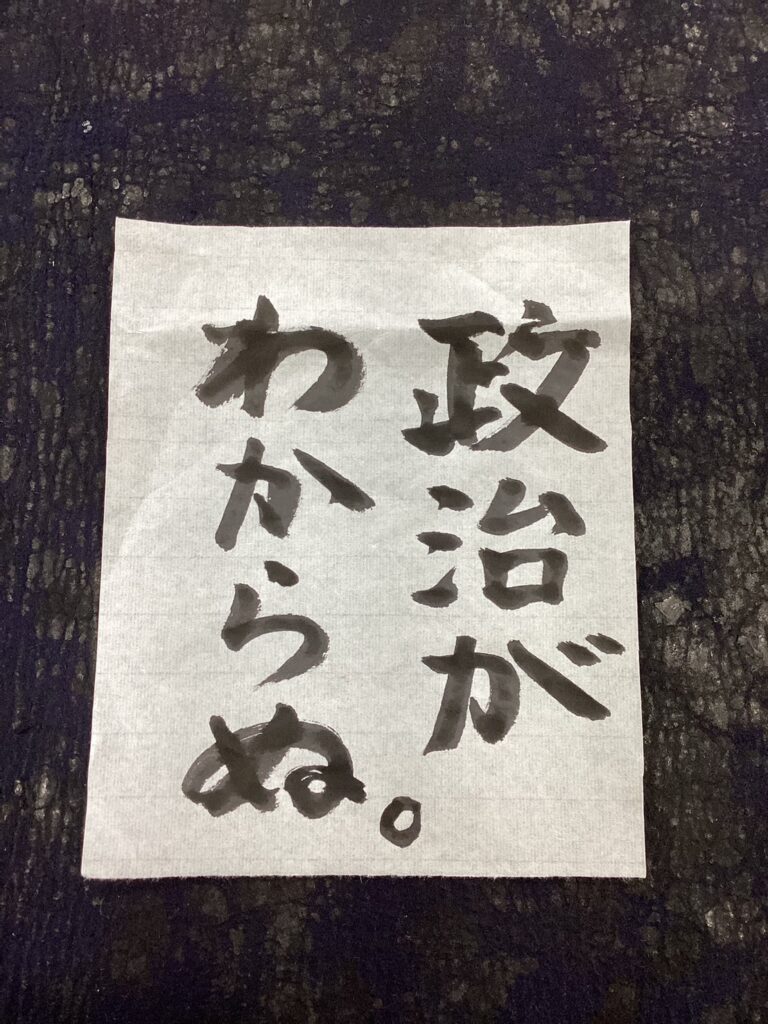 政治が
わからぬ。